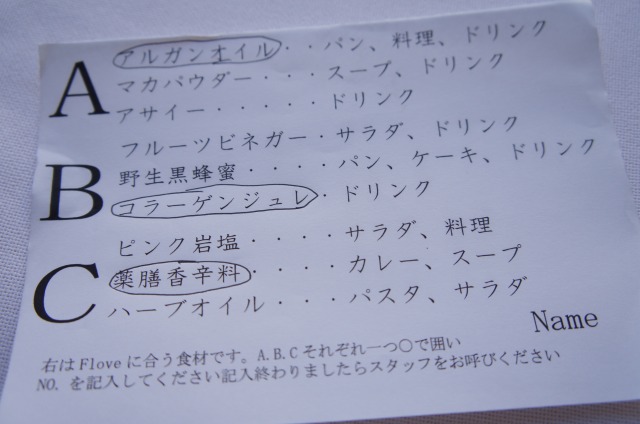 A
アルガンオイル・・パン、料理、ドリンク
マカパウダー・・・スープ、ドリンク
アサイー・・・・・ドリンク
B
フルーツビネガー・サラダ、ドリンク
野生黒蜂蜜・・・・パン、ケーキ、ドリンク
コラーゲンジュレ・ドリンク
C
ピンク岩塩・・・・サラダ、料理
薬膳香辛料・・・・カレー、スープ
ハーブオイル・・・パスタ、サラダ
Name
右はFloveに合う食材です。A.B.Cそれぞれ一つ○で囲い
NO. を記入してください記入終わりましたらスタッフをお呼びください